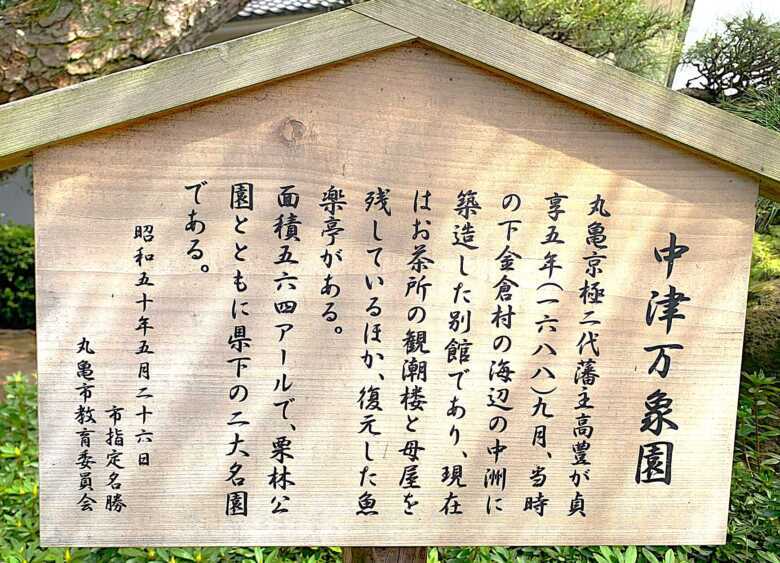 中津万象園
丸亀京極二代藩主高豊が貞
享五年(一六八八)九月、当時
の下金倉村の海辺の中洲に
築造した別館であり、現在
はお茶所の観潮楼と母屋を
残しているほか、復元した魚
楽亭がある。
面積五六四アールで、栗林公
園とともに県下の二大名園
である。
昭和五十年五月二十六日
市指定名勝
丸亀市教育委員会